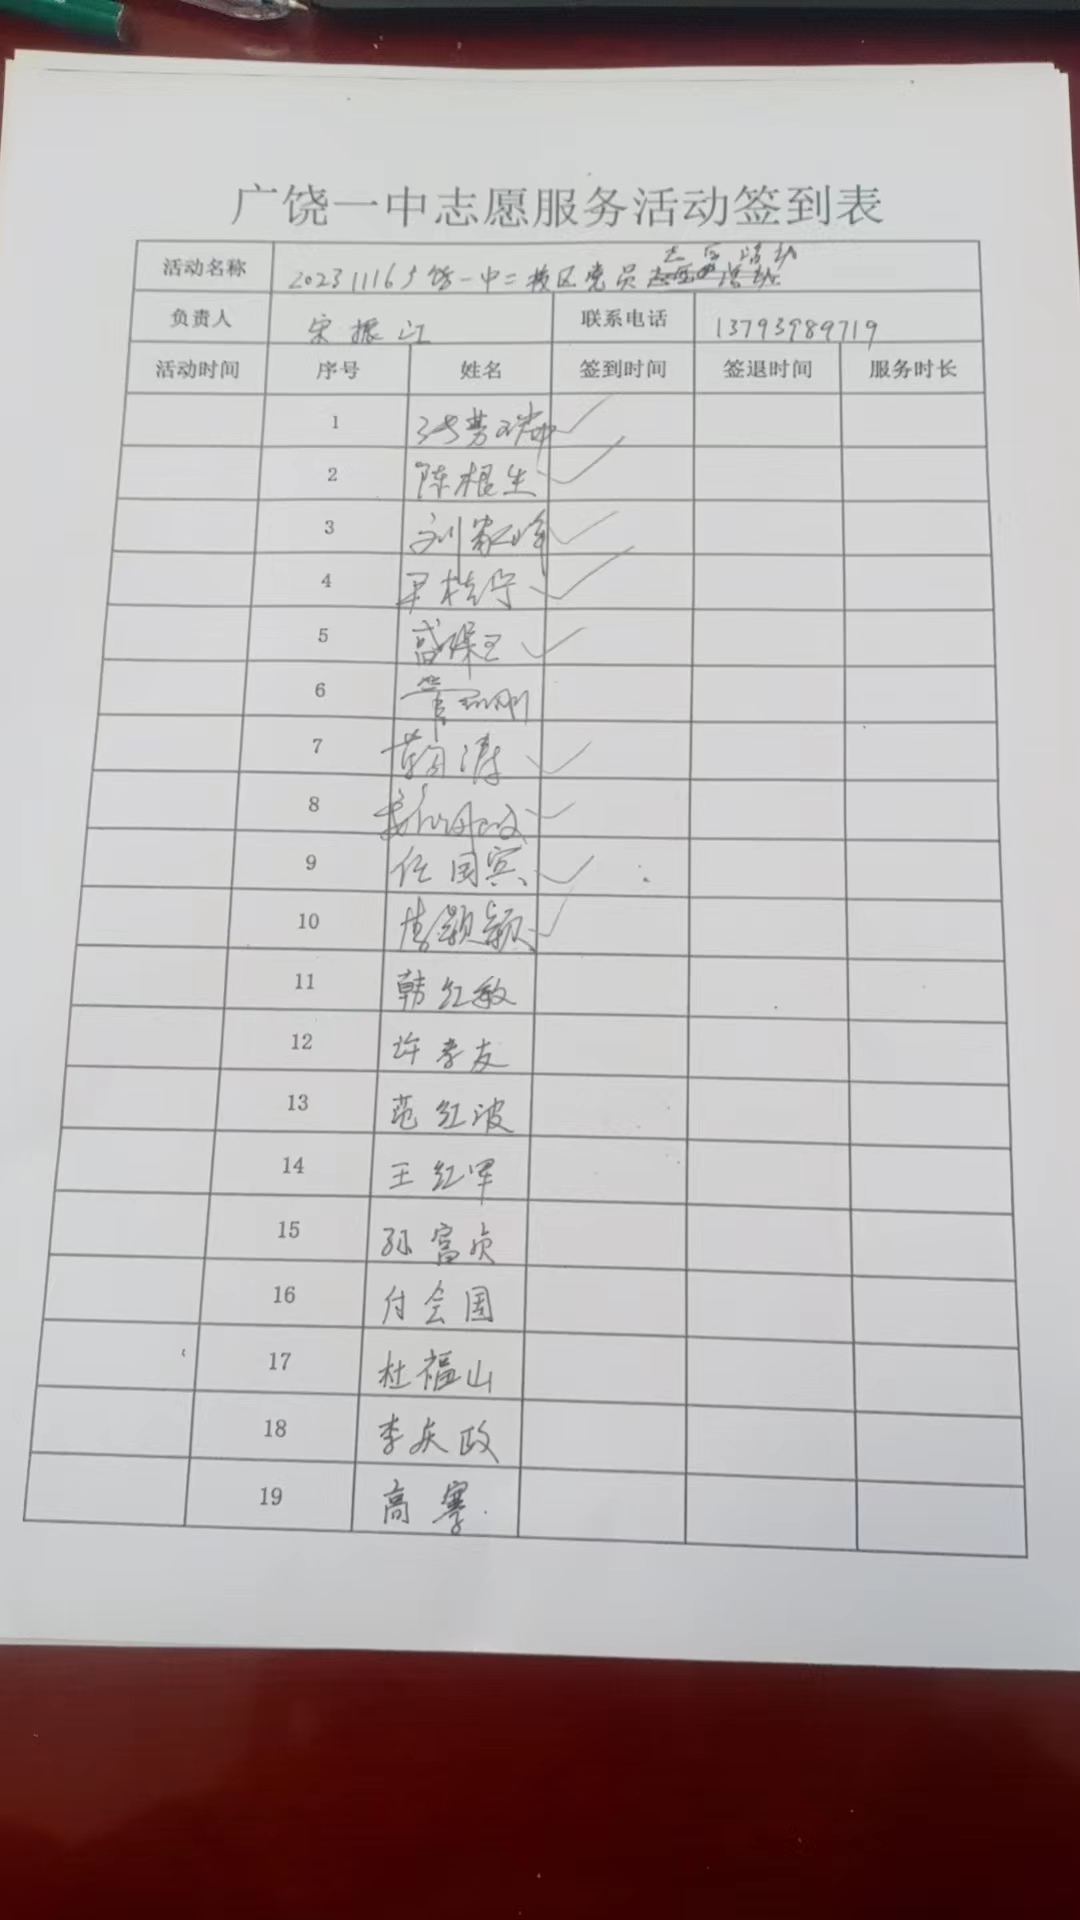 广饶一中志愿服务活动签到表
活动名称 20231116广饶一中二校区党员志愿活动
负责人 宋振江 联系电话 13793989719
活动时间 序号 姓名 签到时间 签退时间 服务时长
1
2 陈根生
3 刘
4 尹桂宁
5 盛保玉
6 管
7 韩涛
8
9 任国宾
10 李颖颖
11 韩红敏
12 许孝友
13 范红波
14 王红军
15 孙富贞
16 付会国
17 杜福山
18 李庆政
19 高